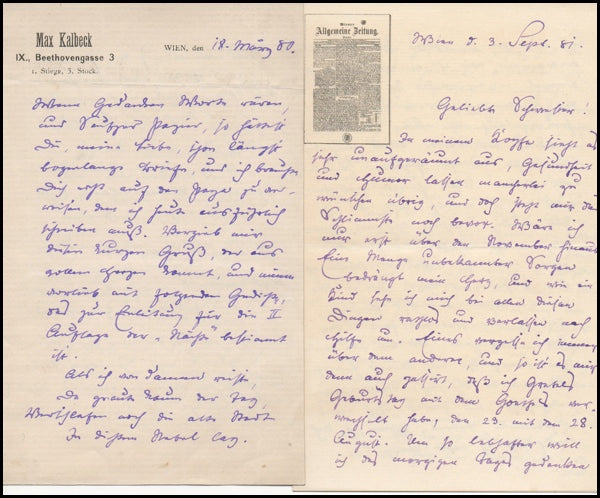 Max Kalbeck
IX., Beethovengasse 3
1. Stiege, 3. Stock.
WIEN, den 18. März 80.
Wenn Gedanken Worte wären,
und Seufzer Papier, so hättest
Du, meine Liebe, schon längst
bogenlange Briefe, und ich brauchte
Dich erst auf den zu ver-
weisen, den ich heute ausführlich
schreiben muß. Verzeih mir
diesen kurzen Gruß, der aus
vollem Herzen kommt, und nimm
vorlieb mit folgendem Gedicht,
das zur Einleitung für die II
Auflage der „Nächte" bestimmt
ist.
Als ich von dannen reiste,
Da graute kaum der Tag,
Verschlafen noch die alte Stadt
In dichtem Nebel lag.
Wiener
Allgemeine Zeitung.
Wien d. 3. Sept. 81.
Geliebte Schwester!
In meinem Kopfe sieht es
sehr unaufgeräumt aus, Gesundheit
und Humor lassen mancherlei zu
wünschen übrig, und doch steht mir das
Schlimmste noch bevor. Wäre ich
nur erst über den November hinaus!
Eine Menge unbekannter Sorgen
bedrängt mein Herz, und wie ein
Kind sehe ich mich bei allen diesen
Dingen rathlos und verlassen nach
Hilfe um. Eins vergesse ich immer
über dem anderen, und so ist es mir
denn auch passirt, daß ich Gretels
Geburtstag mit dem Goethes ver-
wechselt habe, den 23. mit dem 28.
August. Um so lebhafter will
ich des morgigen Tages gedenken